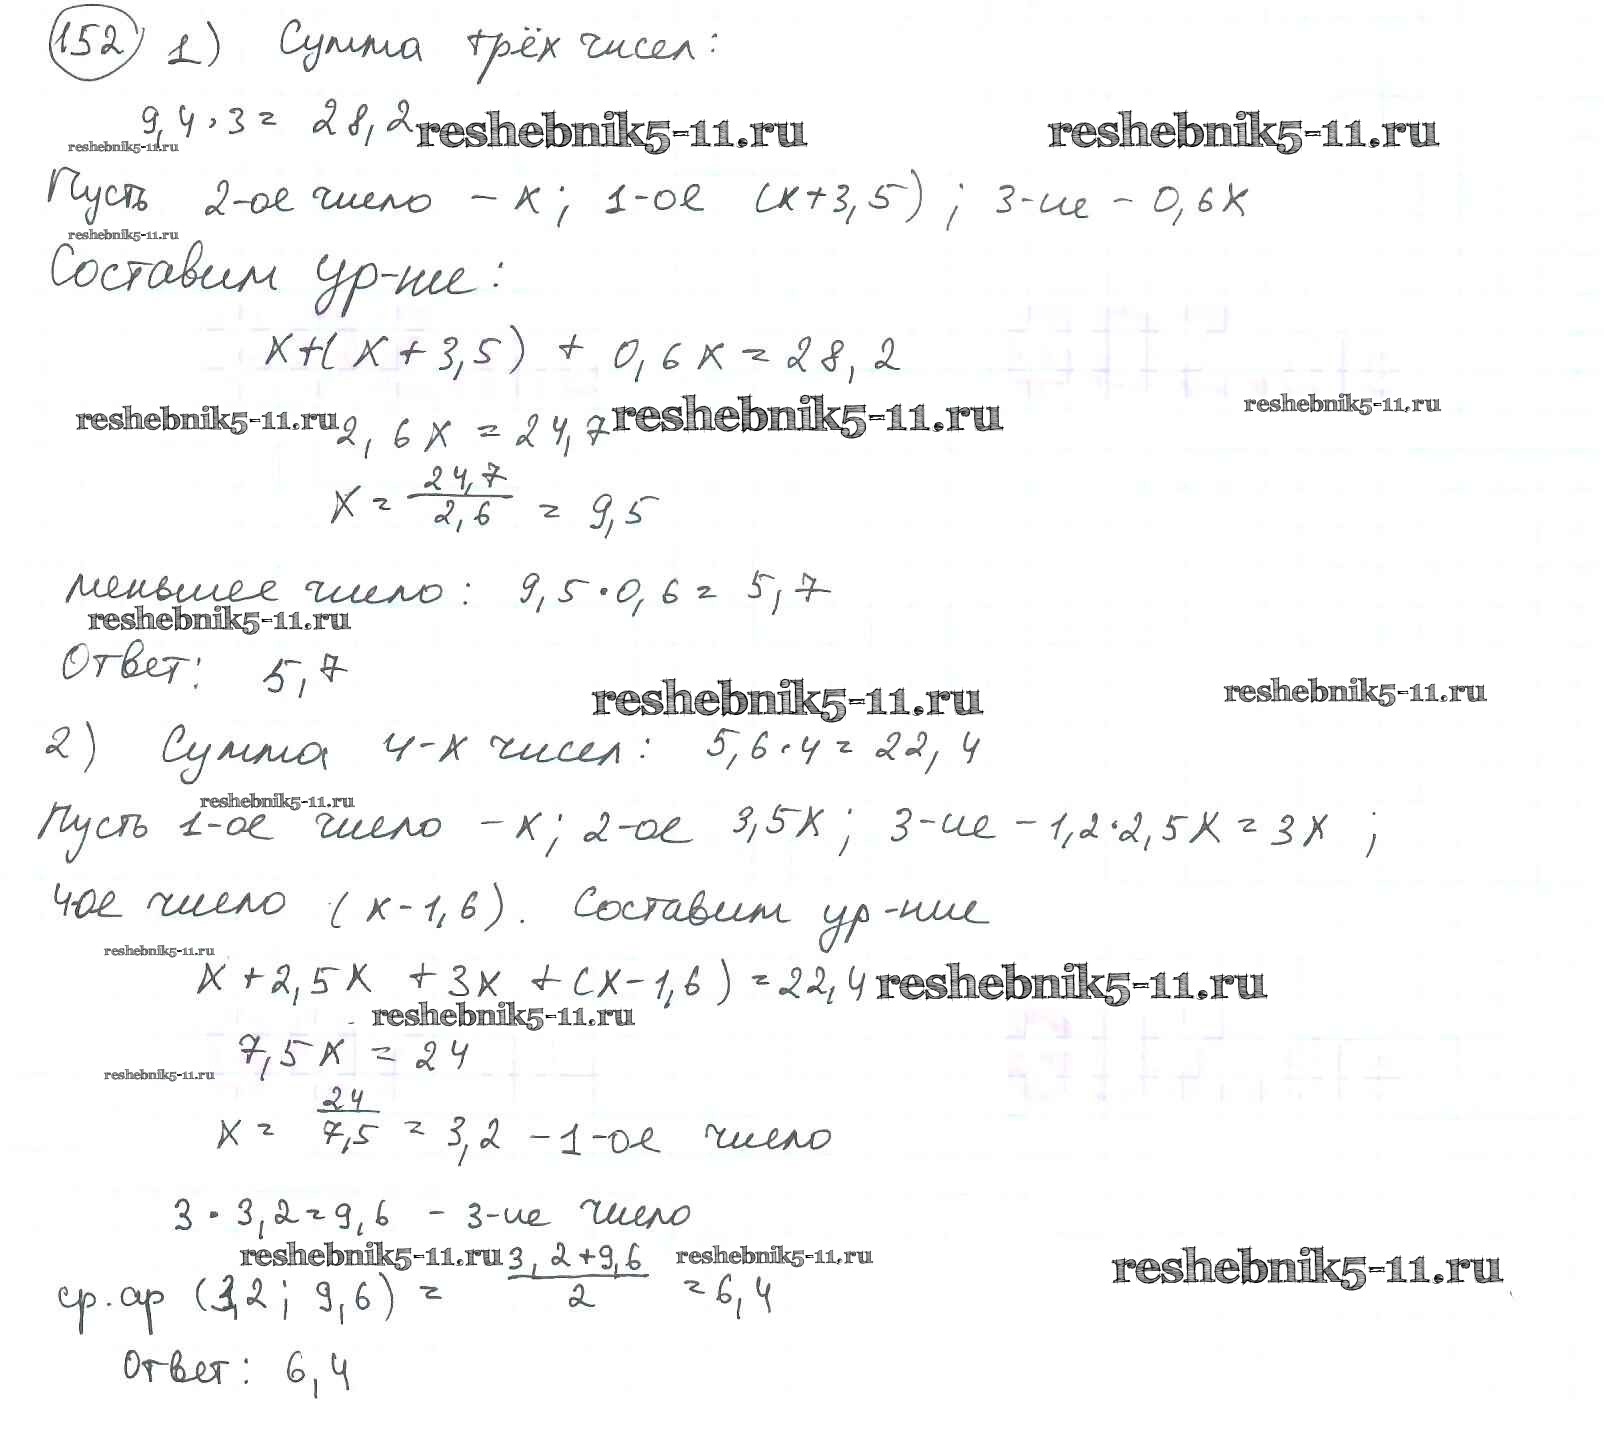 152 1) Сумма трёх чисел:
9,4·3= 28,2 reshebnik5-11.ru reshebnik5-11.ru
reshebnik5-11.ru
Пусть 2-ое число – x; 1-ое (x+3,5); 3-ие – 0,6x
reshebnik5-11.ru
Составим ур-ние:
x+(x+3,5) + 0,6x = 28,2
reshebnik5-11.ru 2,6x = 24,7 reshebnik5-11.ru reshebnik5-11.ru
x = 24,7/2,6 = 9,5
меньшее число: 9,5·0,6= 5,7
reshebnik5-11.ru
Ответ: 5,7
reshebnik5-11.ru reshebnik5-11.ru
2) Сумма 4-х чисел: 5,6·4=22,4
reshebnik5-11.ru
Пусть 1-ое число – x; 2-ое 3,5x; 3-ие – 1,2·2,5x=3x;
4ое число (x-1,6). Составим ур-ние
reshebnik5-11.ru
x+2,5x +3x +(x-1,6)=22,4 reshebnik5-11.ru
reshebnik5-11.ru
7,5x = 24
reshebnik5-11.ru
x = 24/7,5 = 3,2 – 1-ое число
3·3,2=9,6 – 3-ие число
reshebnik5-11.ru reshebnik5-11.ru reshebnik5-11.ru
ср.ар (3,2; 9,6) = 3,2+9,6/2 =6,4
Ответ: 6,4